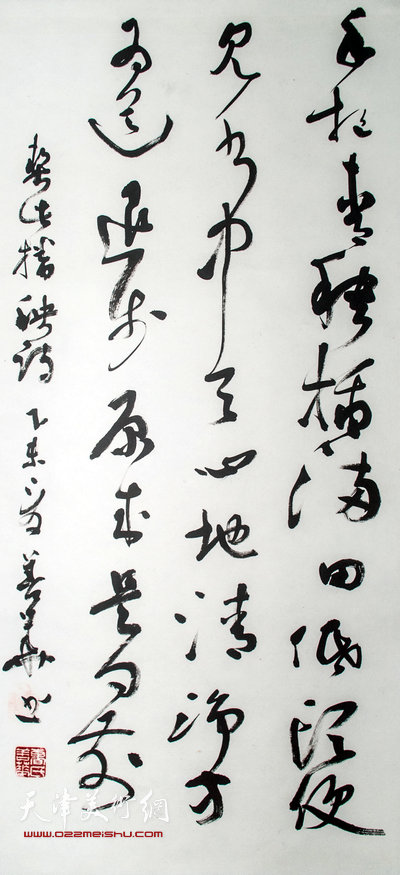 手把青秧插满田低头便
见水中天心地清净方
为道退步原来是向前
契此插秧诗 乙未 书
天津美術網
www.022meishu.com